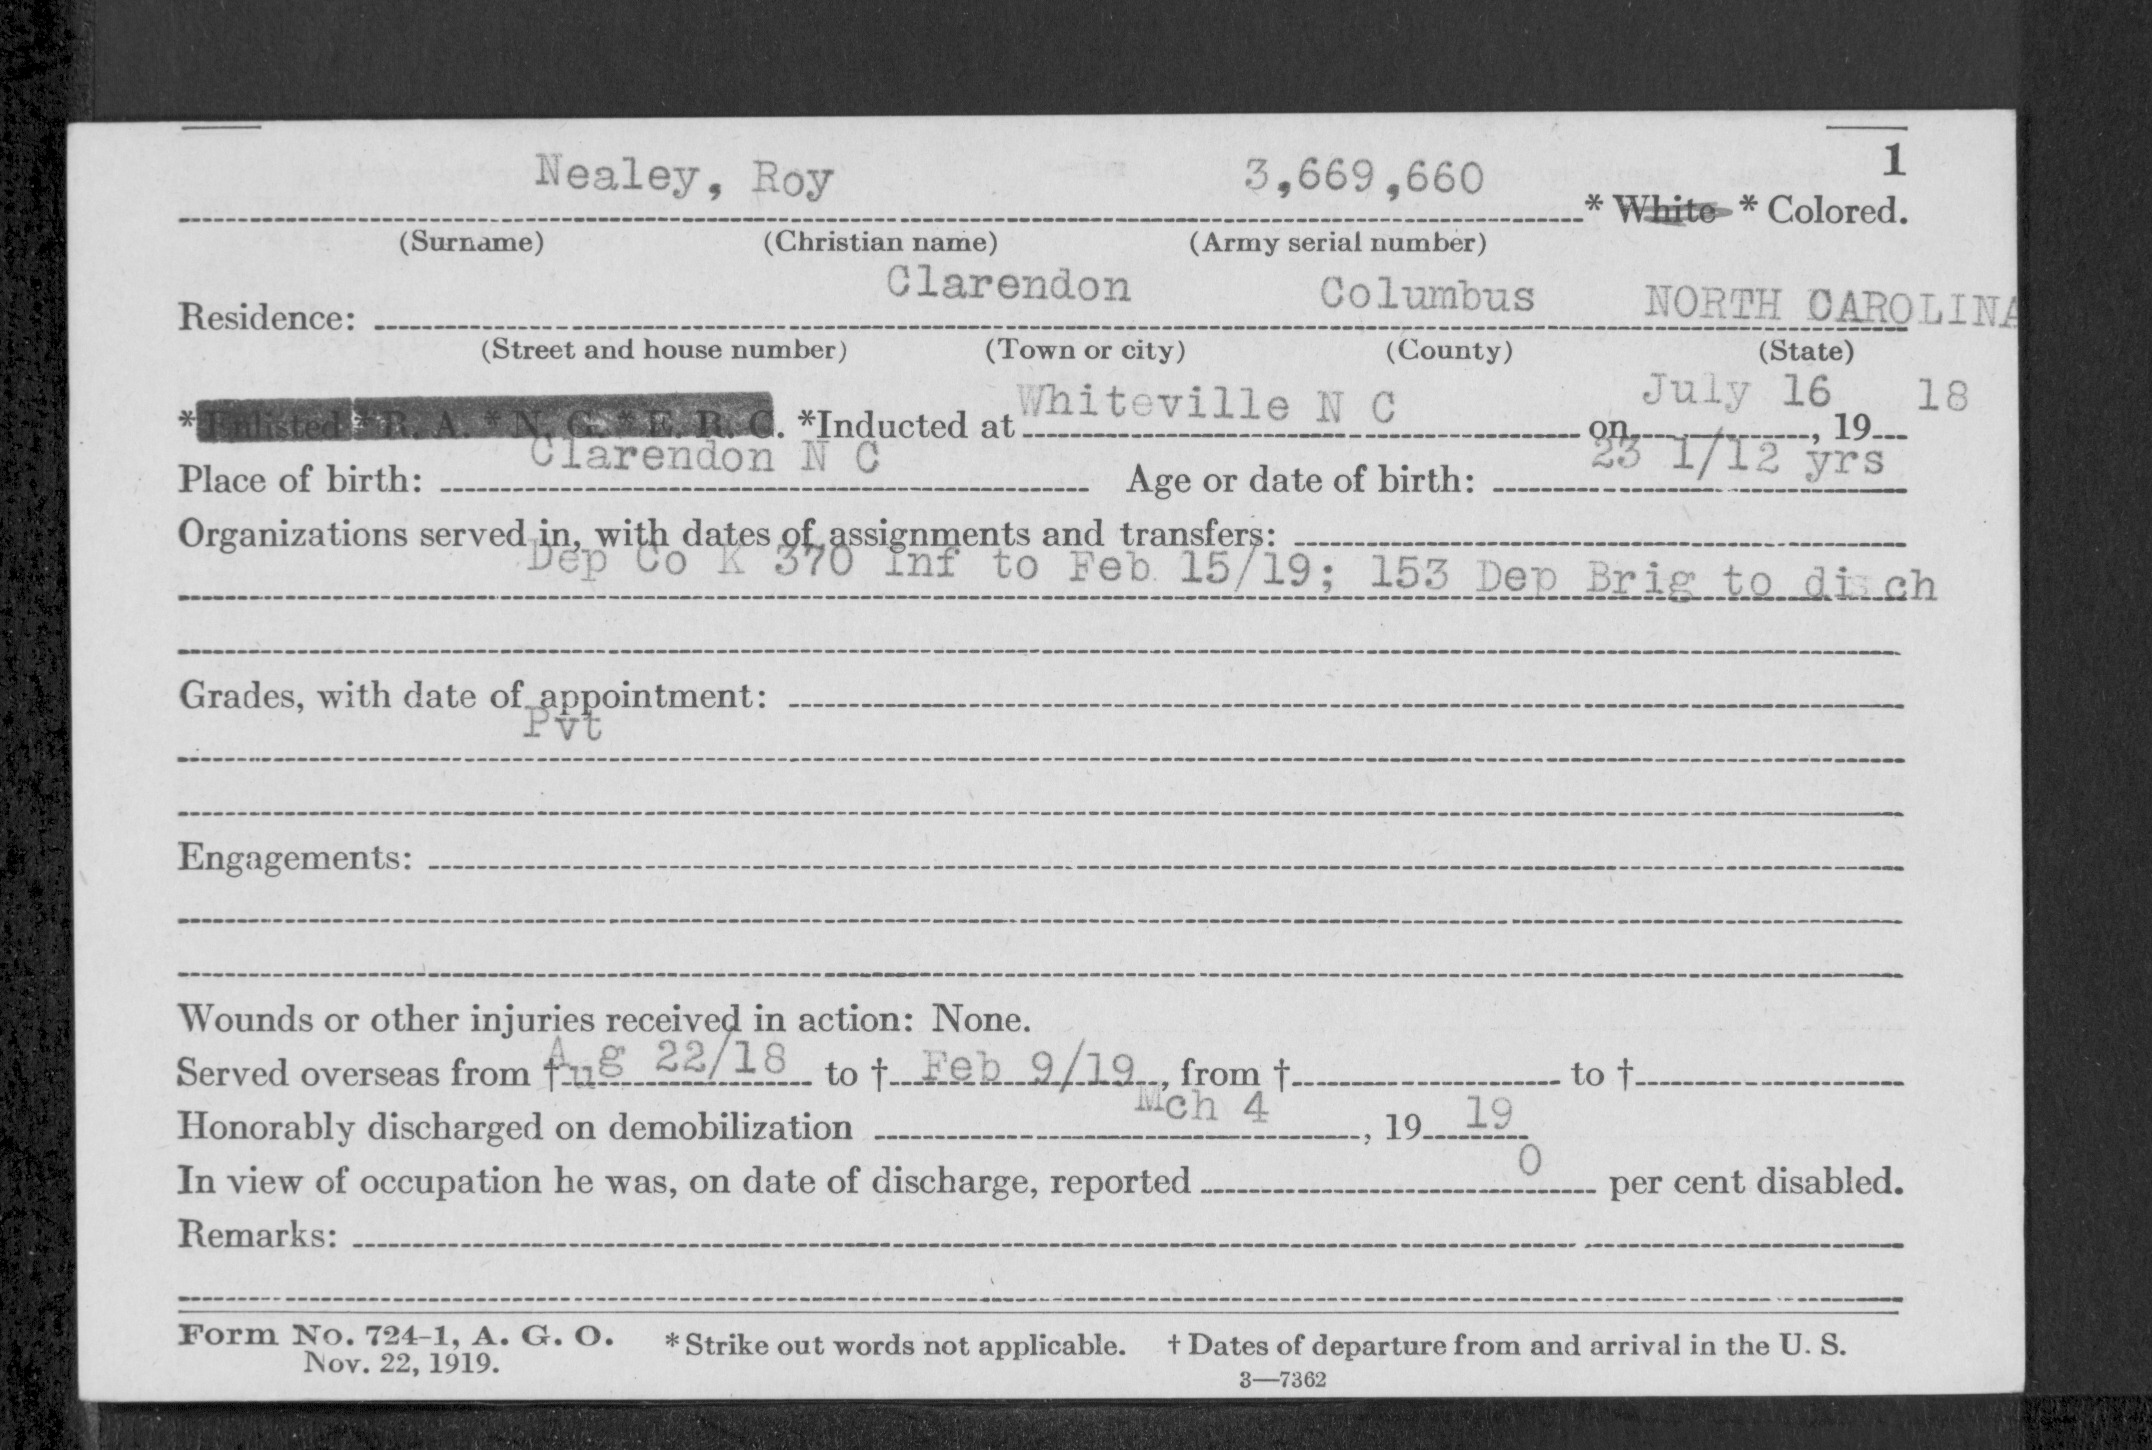 1
Nealey, Roy 3,669,660 * White * Colored.
(Surname) (Christian name) (Army serial number)
Residence: Clarendon Columbus NORTH CAROLINA
(Street and house number) (Town or city) (County) (State)
*Enlisted *R. A. *N. G. *E. R. C. *Inducted at Whiteville N C on July 16, 1918
Place of birth: Clarendon N C Age or date of birth: 23 1/12 yrs
Organizations served in, with dates of assignments and transfers:
Dep Co K 370 Inf to Feb 15/19; 153 Dep Brig to disch
Grades, with date of appointment:
Pvt
Engagements:
Wounds or other injuries received in action: None.
Served overseas from † Aug 22/18 to † Feb 9/19, from † to †
Honorably discharged on demobilization Mch 4, 19 19
In view of occupation he was, on date of discharge, reported 0 per cent disabled.
Remarks:
Form No. 724-1, A. G. O. * Strike out words not applicable. † Dates of departure from and arrival in the U. S.
Nov. 22, 1919.
3—7362